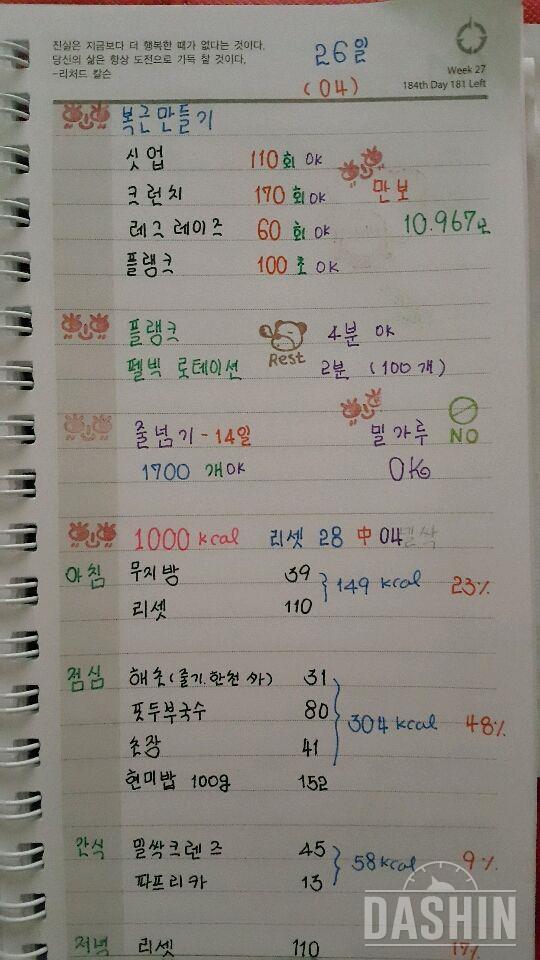 진실은 지금보다 더 행복한 때가 없다는 것이다.
당신의 삶은 항상 도전으로 가득 찰 것이다.
-리처드 칼슨
26일
(04)
Week 27
184th Day 181 Left
복근만들기
싯업 110회 OK
크런치 170회 OK
만보
레그레이즈 60회 OK
10.967보
플랭크 100초 OK
플랭크 4분 OK
Rest
펠빅 로테이션 2분 (100개)
줄넘기 - 14일
밀가루 NO
1700 개 OK
OK
1000 kcal 리셋 28 中 04
아침 무지방 39
리셋 110
149 kcal 23%
점심 해초(줄기.한천 사) 31
풋두부국수 80
초장 41
현미밥 100g 152
304 kcal 48%
간식 밀싹크렌즈 45
파프리카 13
58 kcal 9%
저녁 리셋 110
17%
DASHIN